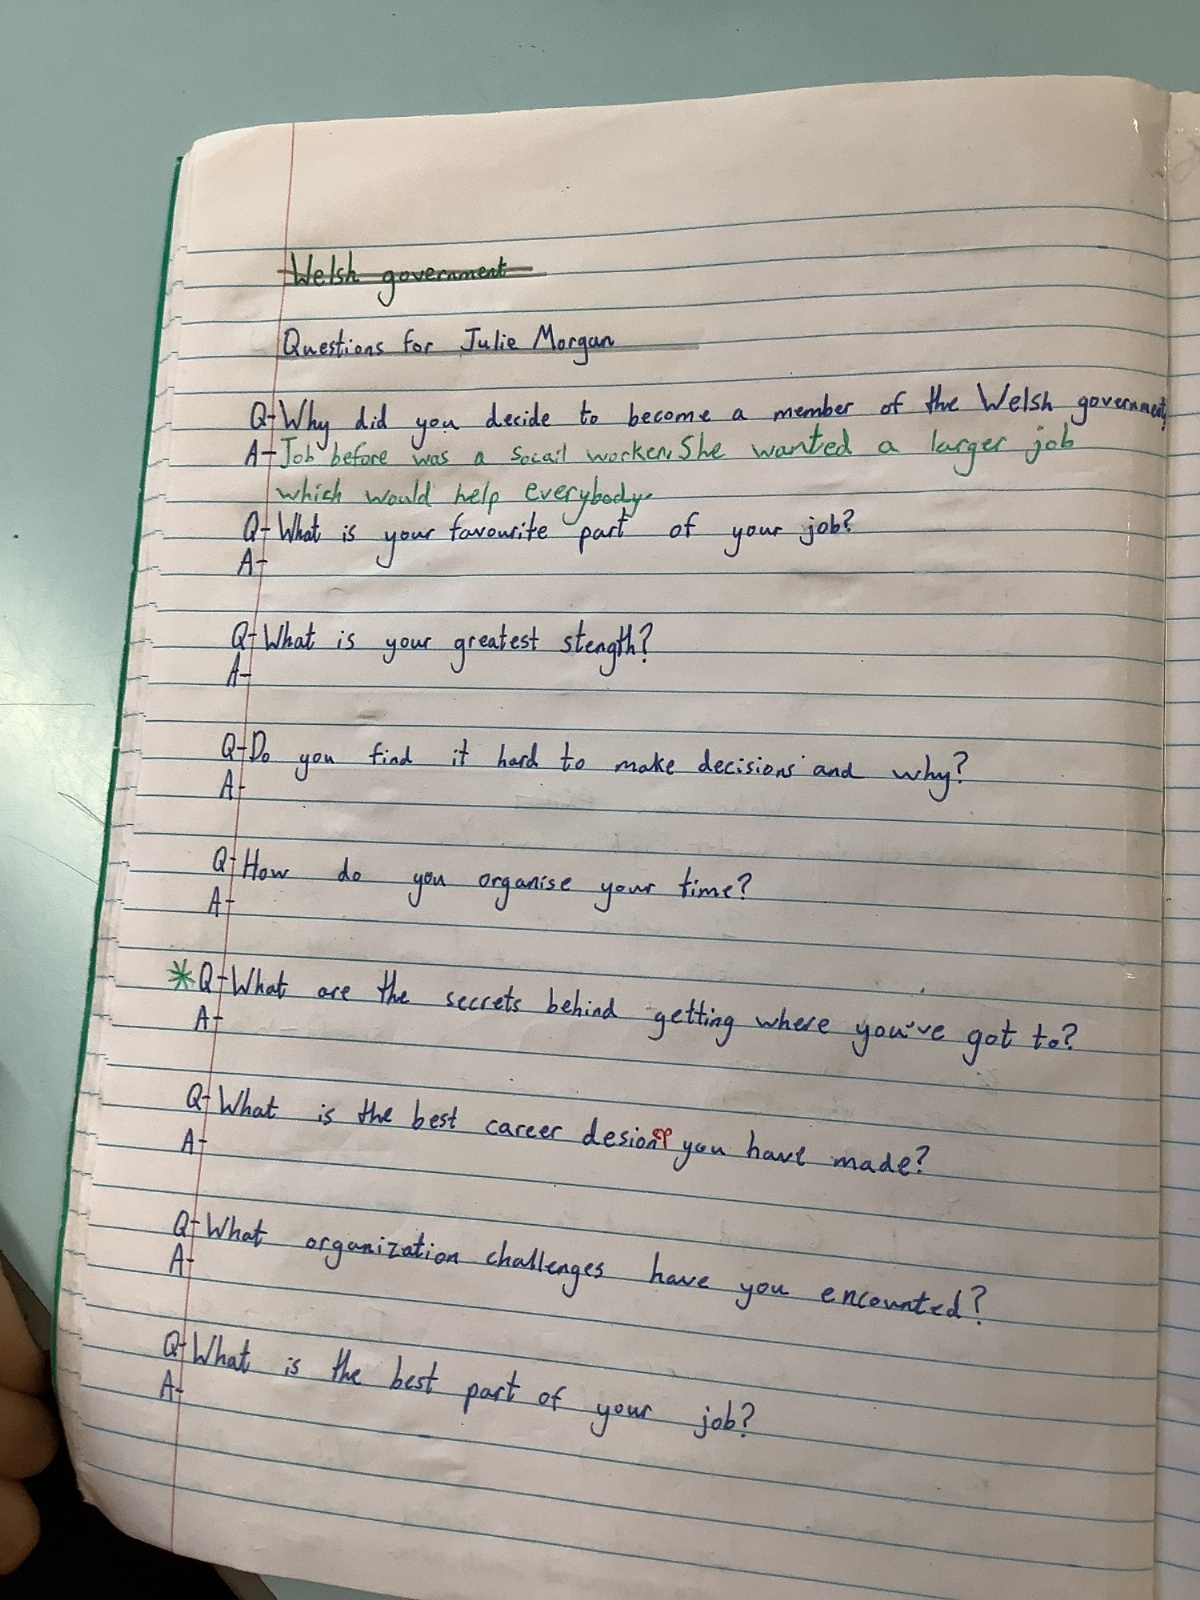 Welsh government
Questions for Julie Morgan
Q-Why did you decide to become a member of the Welsh government
A-Job before was a socail worker. She wanted a larger job
which would help everybody.
Q-What is your favourite part of your job?
A-
Q-What is your greatest stength?
A-
Q-Do you find it hard to make decisions and why?
A-
Q-How do you organise your time?
A-
*Q-What are the secrets behind getting where you've got to?
A-
Q-What is the best career desion you have made?
A-
Q-What organization challenges have you encounted?
A-
Q-What is the best part of your job?
A-